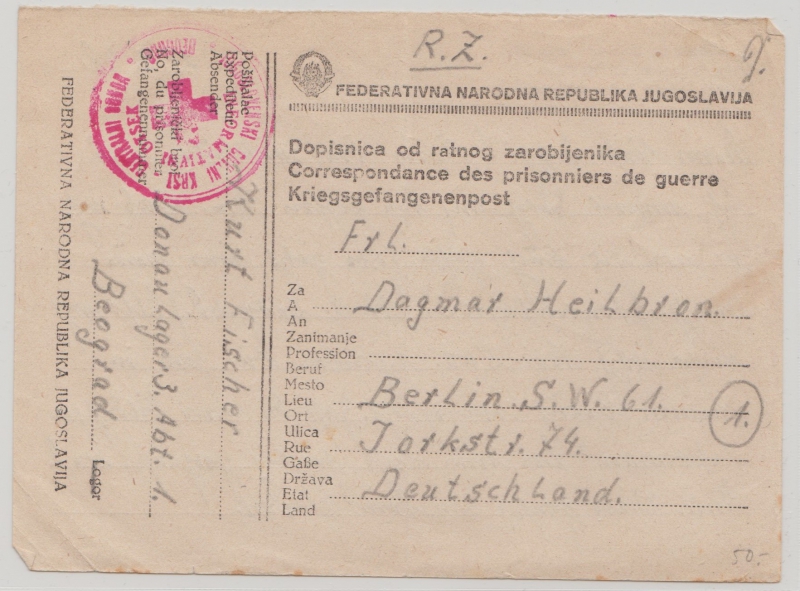 R.Z.
FEDERATIVNA NARODNA REPUBLIKA JUGOSLAVIJA
Dopisnica od ratnog zarobijenika
Correspondance des prisonniers de guerre
Kriegsgefangenenpost
Frl.
Za
A Dagmar Heilbron.
An
Zanimanje
Profession
Beruf
Mesto
Lieu Berlin. S.W. 61. 1.
Ort
Ulica
Rue Jorkstr. 74.
Gaße
Država
Etat Deutschland.
Land
50.-
Pošiljalac
Expediteur
Absender
Kurt Fischer
Zarobljenički broj
No, du prisonnier
Gefangenennummer
Donau Lager 3. Abt. 1.
Beograd Logor
FEDERATIVNA NARODNA REPUBLIKA JUGOSLAVIJA